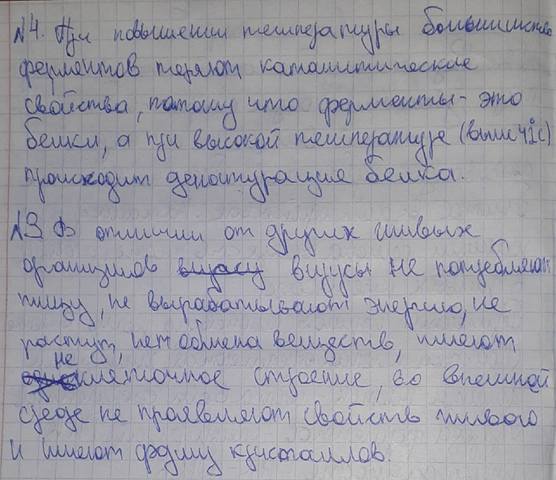 №4. При повышении температуры большинство
ферментов теряют каталитические
свойства, потому что ферменты - это
белки, а при высокой температуре (выше 42°C)
происходит денатурация белка.
№3 В отличии от других живых
организмов вирусы не потребляют
пищу, не вырабатывают энергию, не
растут, нет обмена веществ, имеют
неклеточное строение, во внешней
среде не проявляют свойств живого
и имеют форму кристаллов.